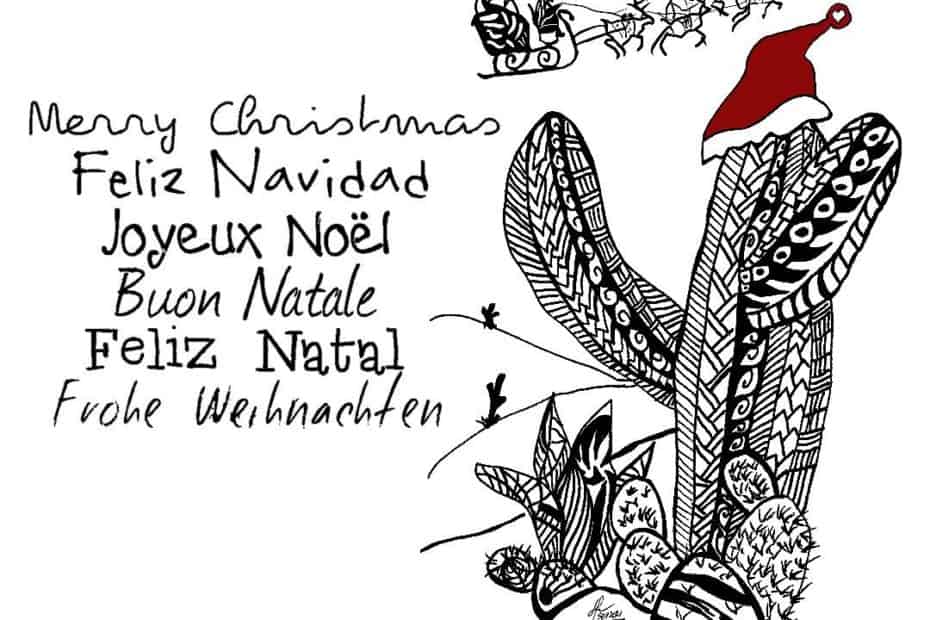 Merry Christmas
Feliz Navidad
Joyeux Noël
Buon Natale
Feliz Natal
Frohe Weihnachten